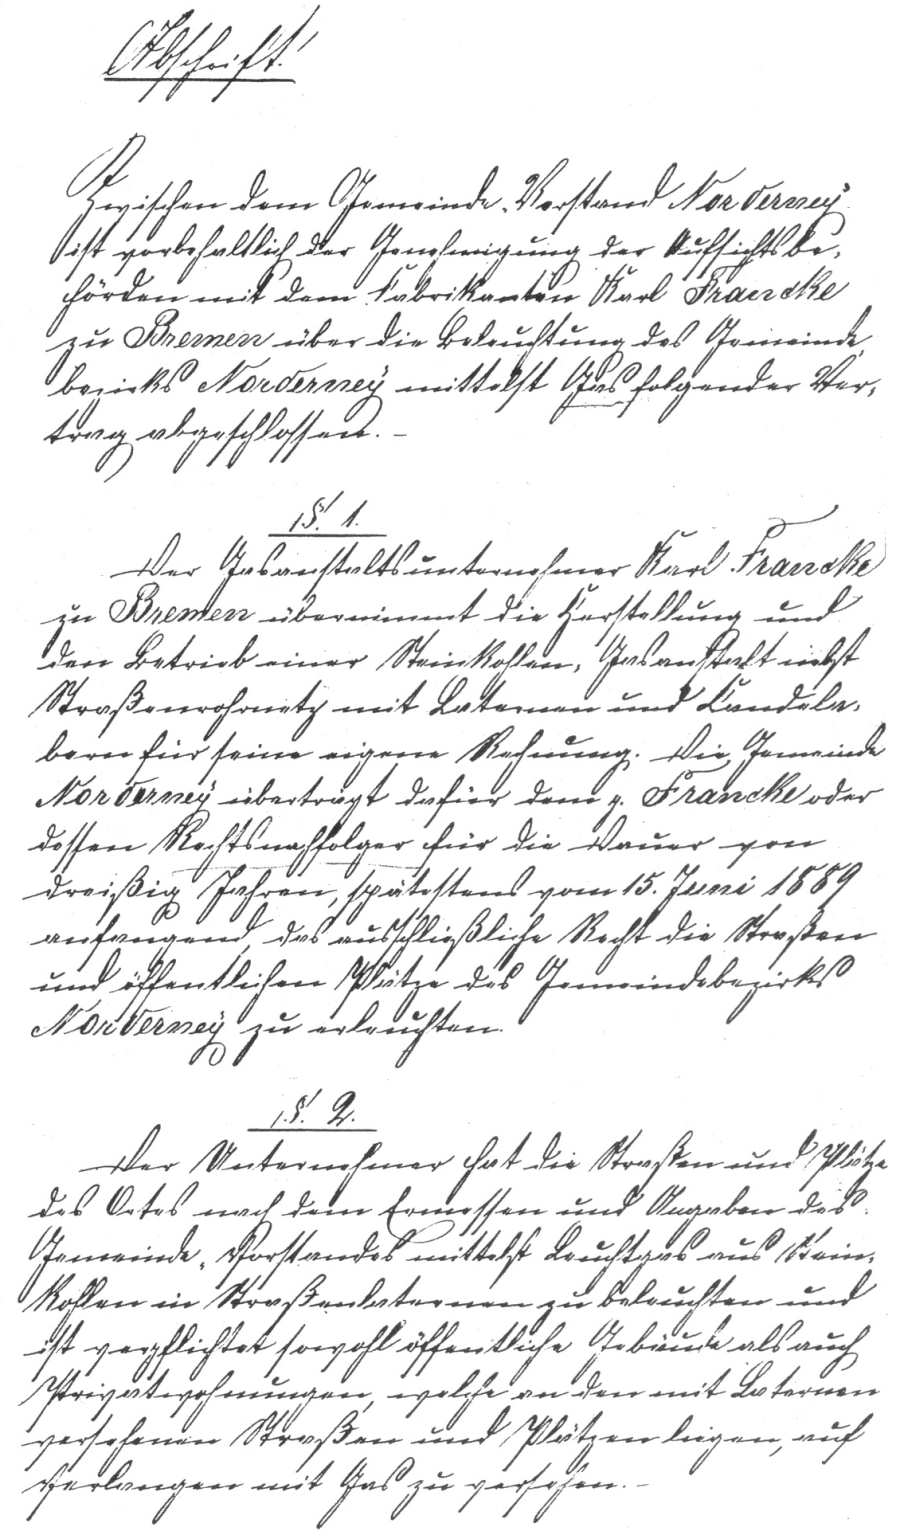 Abschrift!
Zwischen dem Gemeinde-Vorstand Norderney
ist vorbehaltlich der Genehmigung der Aufsichtsbe-
hörden mit dem Fabrikanten Karl Francke
zu Bremen über die Beleuchtung des Gemeinde
bezirks Norderney mittelst Gas folgender Ver-
trag abgeschlossen. –
§. 1.
Der Gasanstaltsunternehmer Karl Francke
zu Bremen übernimmt die Herstellung und
den Betrieb einer Steinkohlen-Gasanstalt nebst
Straßenrohrnetz mit Laternen und Kandela-
bern für seine eigene Rechnung. Die Gemeinde
Norderney überträgt dafür dem p. Francke oder
dessen Rechtsnachfolger für die Dauer von
dreißig Jahren, spätestens vom 15. Juni 1889
anfangend, das ausschließliche Recht die Straßen
und öffentlichen Plätze des Gemeindebezirks
Norderney zu erleuchten.
§. 2.
Der Unternehmer hat die Straßen und Plätze
des Ortes nach dem Ermessen und Angaben des
Gemeinde-Vorstandes mittelst Leuchtgas aus Stein-
kohlen in Straßenlaternen zu beleuchten und
ist verpflichtet sowohl öffentliche Gebäude als auch
Privatwohnungen, welche an den mit Laternen
versehenen Straßen und Plätzen liegen, auf
Verlangen mit Gas zu versehen. –